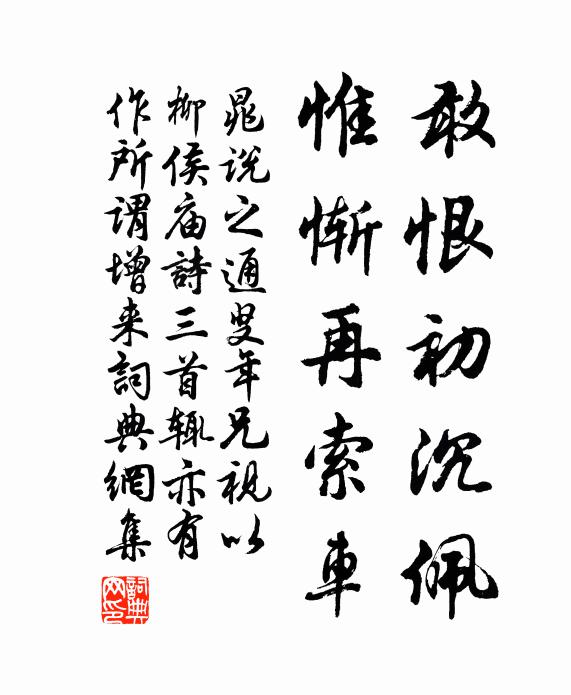 敢恨初沉佩
惟惭再索車
晁说之通叟年兄視以
柳侯庙詩三首辄亦有
作所谓增来詞典網集
詞典网印